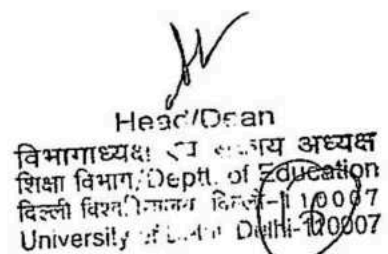 Head/Dean
विभागाध्यक्ष अध्यक्ष
शिक्षा विभाग/Deptt. of Education
दिल्ली दिल्ली-110007
University of Delhi-110007